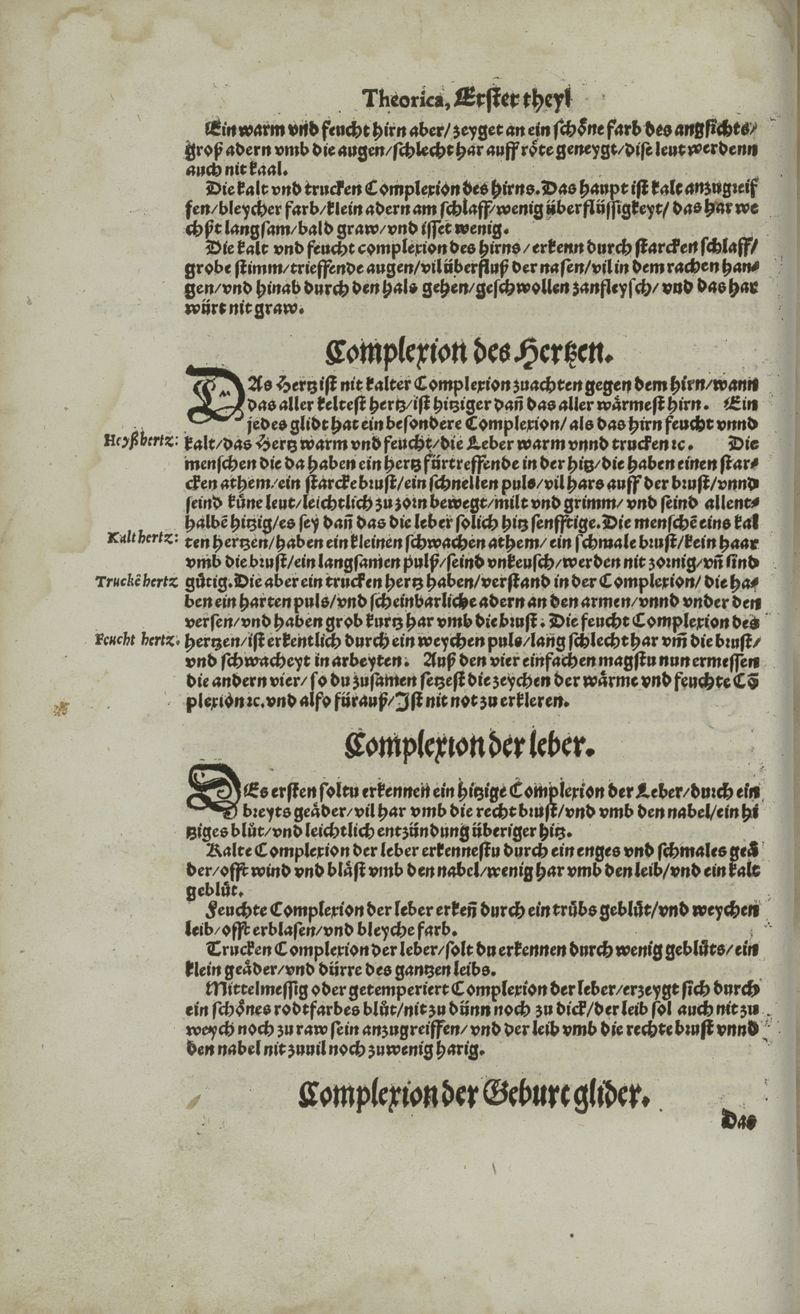 Theorica, Erster theyl
Ein warm vnd feucht hirn aber/zeyget an ein schöne farb des angsichts/
groß adern vmb die augen/schlecht har auff röte geneygt/dise leut werdenn
auch nit kaal.
Die kalt vnd trucken Complexion des hirns. Das haupt ist kalt anzugreif
fen/bleycher farb/klein adern am schlaff/wenig überflüssigkeyt/ das har we
chßt langsam/bald graw/vnd isset wenig.
Die kalt vnd feucht complexion des hirns/erkenn durch starcken schlaff/
grobe stimm/trieffende augen/vil überfluß der nasen/vil in dem rachen han⸗
gen/vnd hinab durch den hals gehen/geschwollen zanfleysch/vnd das har
würt nit graw.
Complexion des Hertzen.
DAs Hertz ist nit kalter Complexion zuachten gegen dem hirn/wann
das aller keltest hertz/ist hitziger dañ das aller wärmest hirn. Ein
jedes glidt hat ein besondere Complexion/als das hirn feucht vnnd
Heyß hertz: kalt/das Hertz warm vnd feucht/die Leber warm vnnd trucken ꝛc. Die
menschen die da haben ein hertz fürtreffende in der hitz/die haben einen star⸗
cken athem/ein starcke brust/ein schnellen puls/vil hars auff der brust/vnnd
seind küne leut/leichtlich zu zorn bewegt/milt vnd grimm/vnd seind allent⸗
halbē hitzig/es sey dañ das die leber solich hitz senfftige. Die menschē eins kal
Kalt hertz: ten hertzen/haben ein kleinen schwachen athem/ein schmale brust/kein haar
vmb die brust/ein langsamen pulß/seind vnkeusch/werden nit zornig/vñ sind
Truckē hertz gütig. Die aber ein trucken hertz haben/verstand in der Complexion/die ha⸗
ben ein harten puls/vnd scheinbarliche adern an den armen/vnnd vnder den
versen/vnd haben grob kurtz har vmb die brust. Die feucht Complexion des
Feucht hertz. hertzen/ist erkentlich durch ein weychen puls/lang schlecht har vm̄ die brust/
vnd schwacheyt in arbeyten. Auß den vier einfachen magstu nun ermessen
die andern vier/so du zusamen setzest die zeychen der wärme vnd feuchte Cō
plexion ꝛc. vnd also fürauß/Ist nit not zu erkleren.
Complexion der leber.
DEs ersten soltu erkennen ein hitzige Complexion der Leber/durch ein
breyts geäder/vil har vmb die recht brust/vnd vmb den nabel/ein hi
tziges blüt/vnd leichtlich entzündung überiger hitz.
Kalte Complexion der leber erkennestu durch ein enges vnd schmales geä
der/offt wind vnd bläst vmb den nabel/wenig har vmb den leib/vnd ein kalt
geblüt.
Feuchte Complexion der leber erkeñ durch ein trübs geblüt/vnd weychen
leib/offt erblasen/vnd bleyche farb.
Trucken Complexion der leber/solt du erkennen durch wenig geblüts/ein
klein geäder/vnd dürre des gantzen leibs.
Mittelmessig oder getemperiert Complexion der leber/erzeygt sich durch
ein schönes rodtfarbes blüt/nit zu dünn noch zu dick/der leib sol auch nit zu
weych noch zu raw sein anzugreiffen/vnd der leib vmb die rechte brust vnnd
den nabel nit zuuil noch zuwenig harig.
Complexion der Geburt glider.
Das